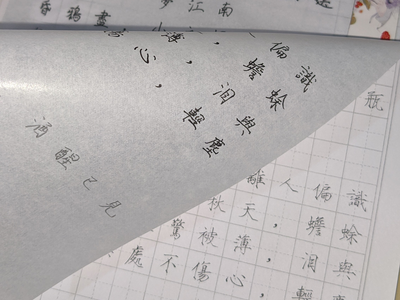 夢江南
偏識
，蟾蜍
，淚與
心，輕塵
酒醒已見
瓶
離人偏識
秋天，蟾蜍
驚被薄，淚與
處不傷心，輕